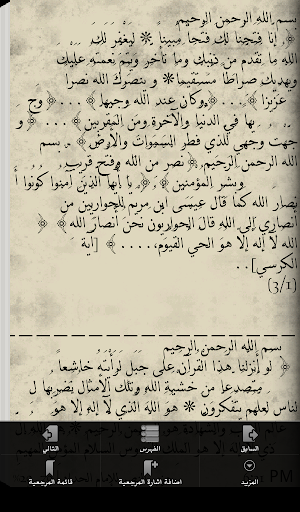 بسم الله الرحمن الرحيم
﴿ إنا فتحنا لك فتحا مبينا * ليغفر لك
الله ما تقدم من ذنبك وما تأخر ويتم نعمته عليك
ويهديك صراطا مستقيما * وينصرك الله نصرا
عزيزا ﴾ . . . ﴿ وكان عند الله وجيها ﴾ . . . ﴿ وج
يها في الدنيا والآخرة ومن المقربين ﴾ . . . ﴿ و
جهت وجهي للذي فطر السموات والأرض ﴾ بسم
الله الرحمن الرحيم ﴿ نصر من الله وفتح قريب
وبشر المؤمنين ﴾ ﴿ يا أيها الذين آمنوا كونوا أ
نصار الله كما قال عيسى ابن مريم للحواريين من
أنصاري إلى الله قال الحواريون نحن أنصار الله ﴾ ﴿
الله لا إله إلا هو الحي القيوم، . . . . ﴾ [آية
الكرسي] . .
(3/1)
بسم الله الرحمن الرحيم
﴿ لو أنزلنا هذا القرآن على جبل لرأيته خاشعا
متصدعا من خشية الله وتلك الأمثال نضربها ل
لناس لعلهم يتفكرون * هو الله الذي لا إله إلا هو
السابق
الفهرس
التالي
المزيد
اضافة اشارة المرجعية
قائمة المرجعية